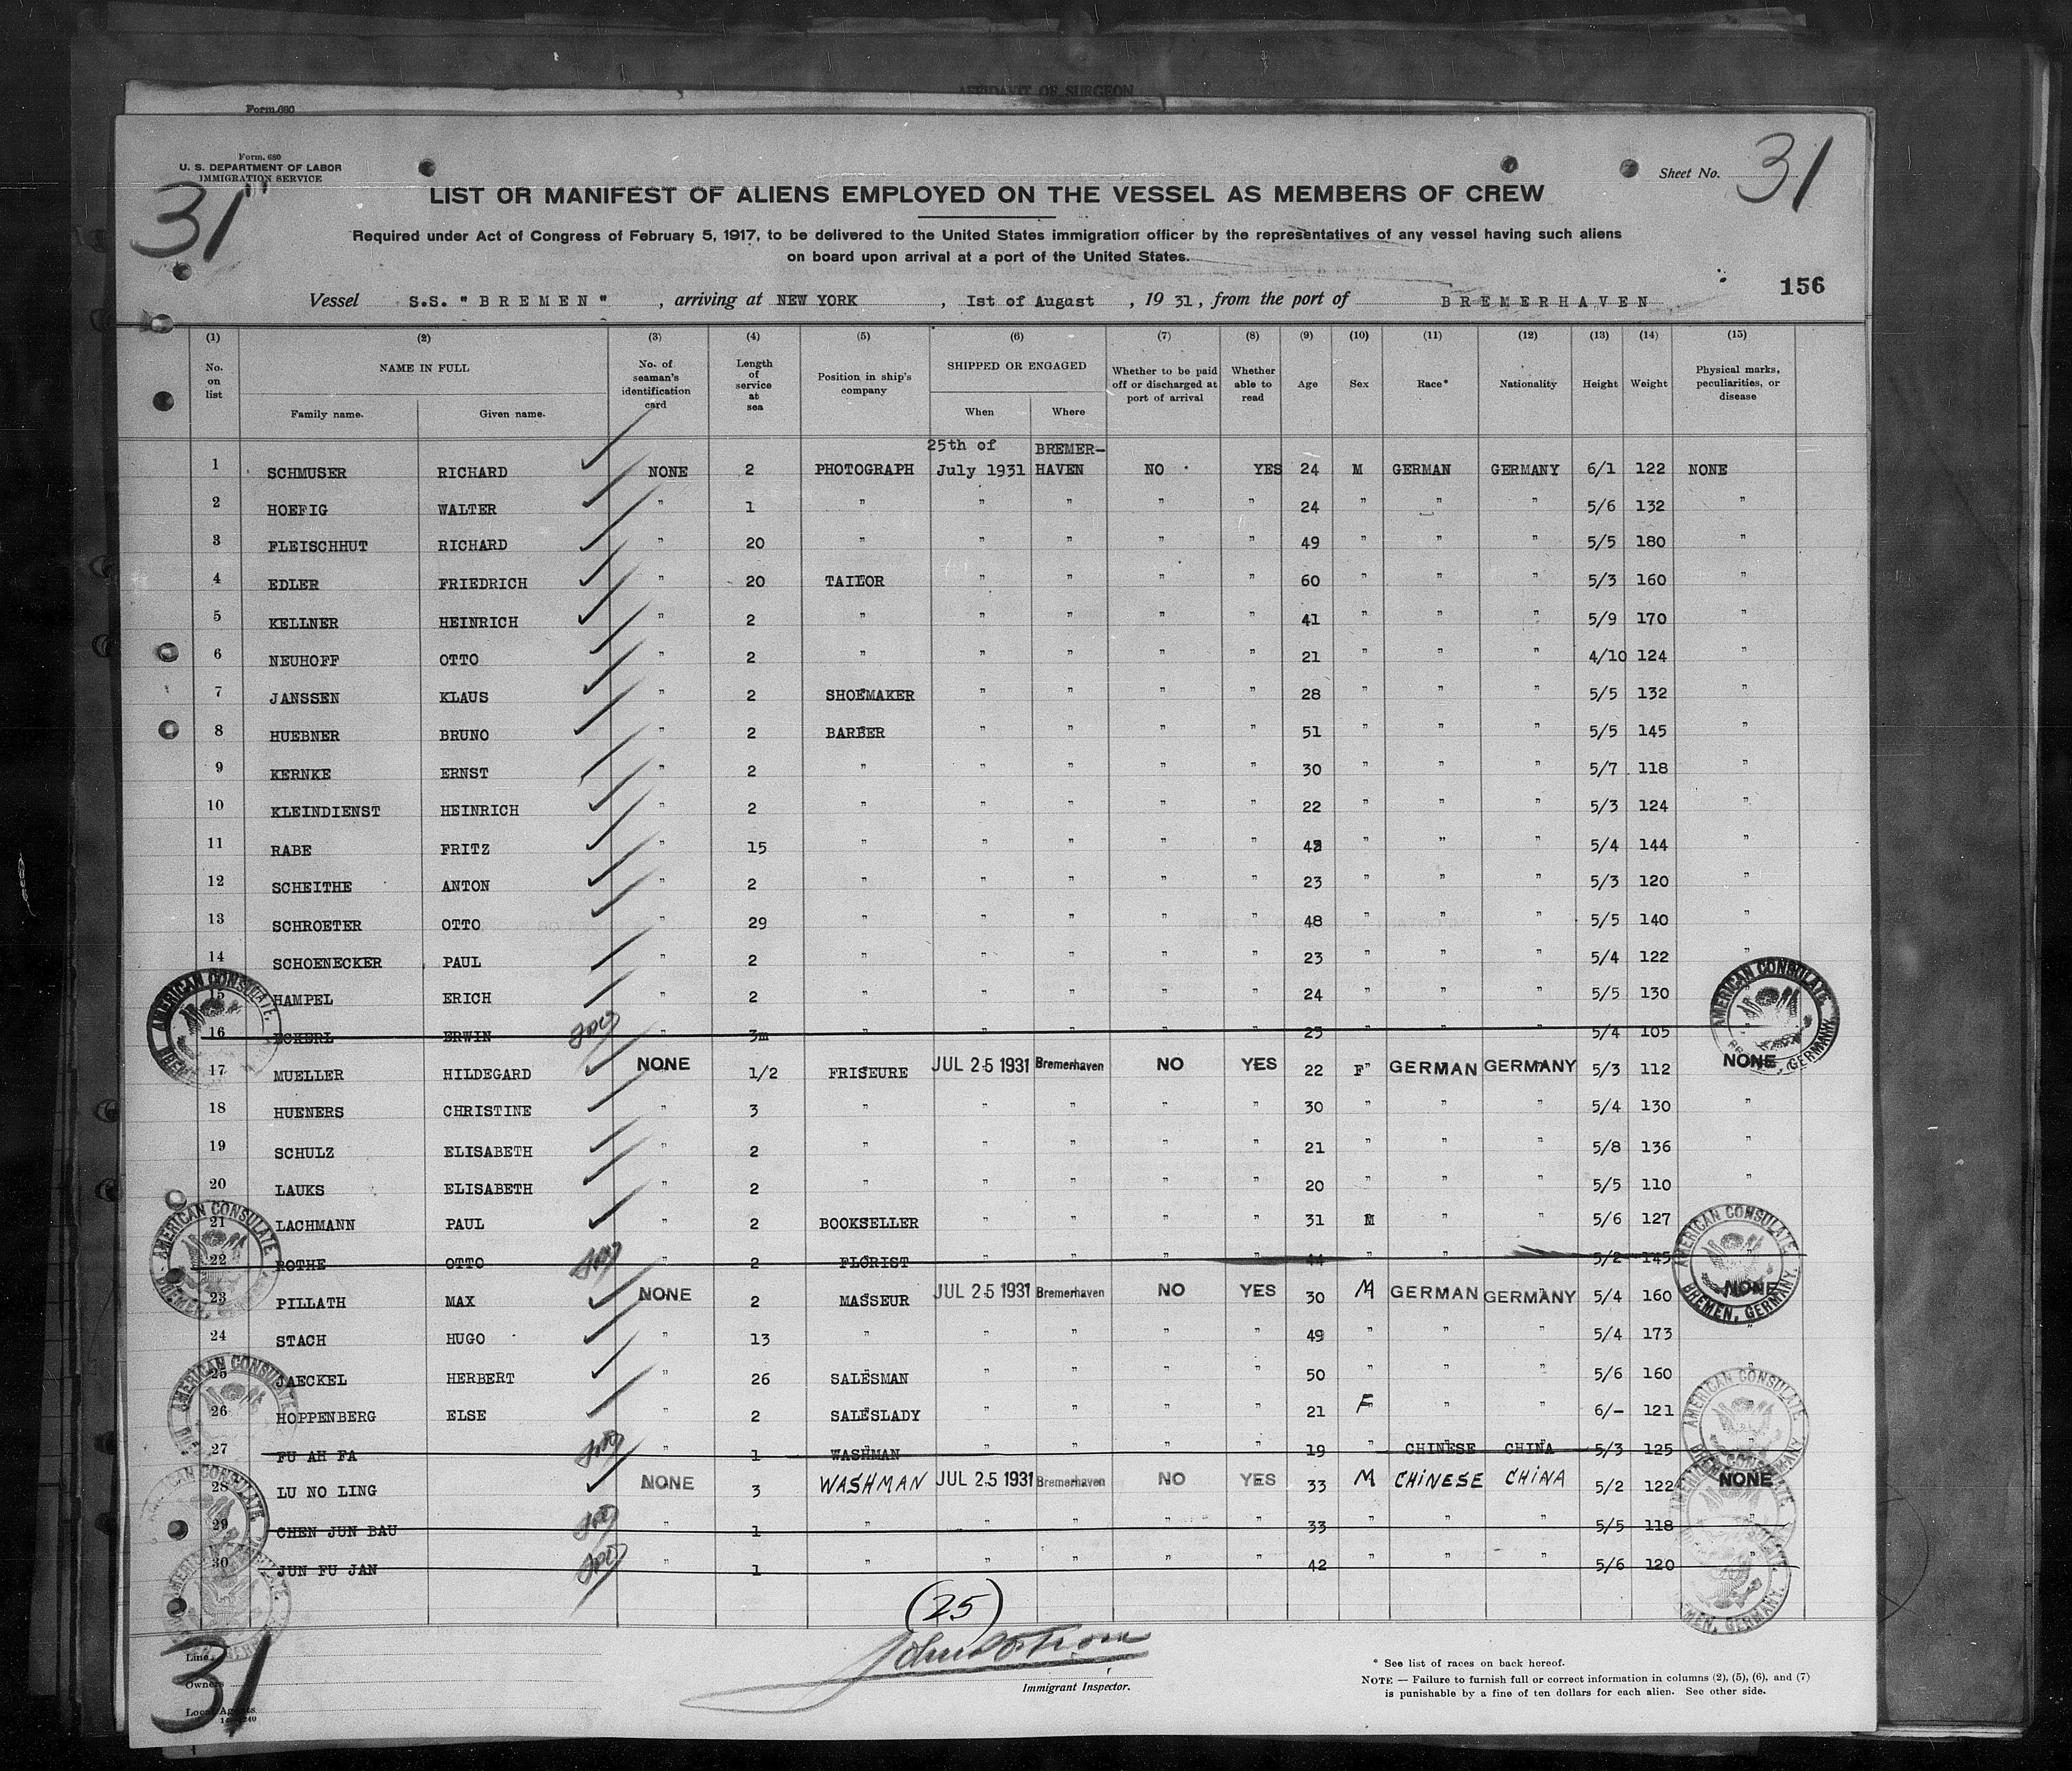 AFFIDAVIT OF SURGEON
Form 680
Form. 680
U. S. DEPARTMENT OF LABOR
IMMIGRATION SERVICE
31
Sheet No. 31
LIST OR MANIFEST OF ALIENS EMPLOYED ON THE VESSEL AS MEMBERS OF CREW
Required under Act of Congress of February 5, 1917, to be delivered to the United States immigration officer by the representatives of any vessel having such aliens
on board upon arrival at a port of the United States.
156
Vessel S.S. "BREMEN", arriving at NEW YORK, Ist of August, 19 31, from the port of BREMERHAVEN
(1) (2) (3) (4) (5) (6) (7) (8) (9) (10) (11) (12) (13) (14) (15)
No. on list NAME IN FULL Family name. Given name. No. of seaman's identification card Length of service at sea Position in ship's company SHIPPED OR ENGAGED When Where Whether to be paid off or discharged at port of arrival Whether able to read Age Sex Race* Nationality Height Weight Physical marks, peculiarities, or disease
25th of BREMER-
1 SCHMUSER RICHARD NONE 2 PHOTOGRAPH July 1931 HAVEN NO YES 24 M GERMAN GERMANY 6/1 122 NONE
2 HOEFIG WALTER " 1 " " " " " 24 " " " 5/6 132 "
3 FLEISCHHUT RICHARD " 20 " " " " " 49 " " " 5/5 180 "
4 EDLER FRIEDRICH " 20 TAILOR " " " " 60 " " " 5/3 160 "
5 KELLNER HEINRICH " 2 " " " " " 41 " " " 5/9 170 "
6 NEUHOFF OTTO " 2 " " " " " 21 " " " 4/10 124 "
7 JANSSEN KLAUS " 2 SHOEMAKER " " " " 28 " " " 5/5 132 "
8 HUEBNER BRUNO " 2 BARBER " " " " 51 " " " 5/5 145 "
9 KERNKE ERNST " 2 " " " " " 30 " " " 5/7 118 "
10 KLEINDIENST HEINRICH " 2 " " " " " 22 " " " 5/3 124 "
11 RABE FRITZ " 15 " " " " " " " " 5/4 144 "
12 SCHEITHE ANTON " 2 " " " " " 23 " " " 5/3 120 "
13 SCHROETER OTTO " 29 " " " " " 48 " " " 5/5 140 "
14 SCHOENECKER PAUL " 2 " " " " " 23 " " " 5/4 122 "
15 HAMPEL ERICH " 2 " " " " " 24 " " " 5/5 130
16 ECKERL ERWIN " 3m " " " " " 23 " " " 5/4 105 "
17 MUELLER HILDEGARD NONE 1/2 FRISEURE JUL 25 1931 Bremerhaven NO YES 22 F GERMAN GERMANY 5/3 112 NONE
18 HUENERS CHRISTINE " 3 " " " " " 30 " " " 5/4 130 "
19 SCHULZ ELISABETH " 2 " " " " " 21 " " " 5/8 136 "
20 LAUKS ELISABETH " 2 " " " " " 20 " " " 5/5 110 "
21 LACHMANN PAUL " 2 BOOKSELLER " " " " 31 M " " 5/6 127 "
22 ROTHE OTTO " 2 FLORIST " " " " 44 " " " 5/2 145 "
23 PILLATH MAX NONE 2 MASSEUR JUL 25 1931 Bremerhaven NO YES 30 M GERMAN GERMANY 5/4 160 NONE
24 STACH HUGO " 13 " " " " " 49 " " " 5/4 173 "
25 JAECKEL HERBERT " 26 SALESMAN " " " " 50 " " " 5/6 160 "
26 HOPPENBERG ELSE " 2 SALESLADY " " " " 21 F " " 6/- 121 "
27 FU AH FA " 1 WASHMAN " " " " 19 " CHINESE CHINA 5/3 125 "
28 LU NO LING NONE 3 WASHMAN JUL 25 1931 Bremerhaven NO YES 33 M CHINESE CHINA 5/2 122 NONE
29 CHEN JUN BAU " 1 " " " " " 33 " " " 5/5 118 "
30 JUN FU JAN " 1 " " " " " 42 " " " 5/6 120 "
AMERICAN CONSULATE BREMEN, GERMANY.
AMERICAN CONSULATE BREMEN, GERMANY.
AMERICAN CONSULATE BREMEN, GERMANY.
AMERICAN CONSULATE BREMEN, GERMANY.
(25)
Immigrant Inspector.
Line
Owners
Local Agents
31
* See list of races on back hereof.
NOTE — Failure to furnish full or correct information in columns (2), (5), (6), and (7)
is punishable by a fine of ten dollars for each alien. See other side.